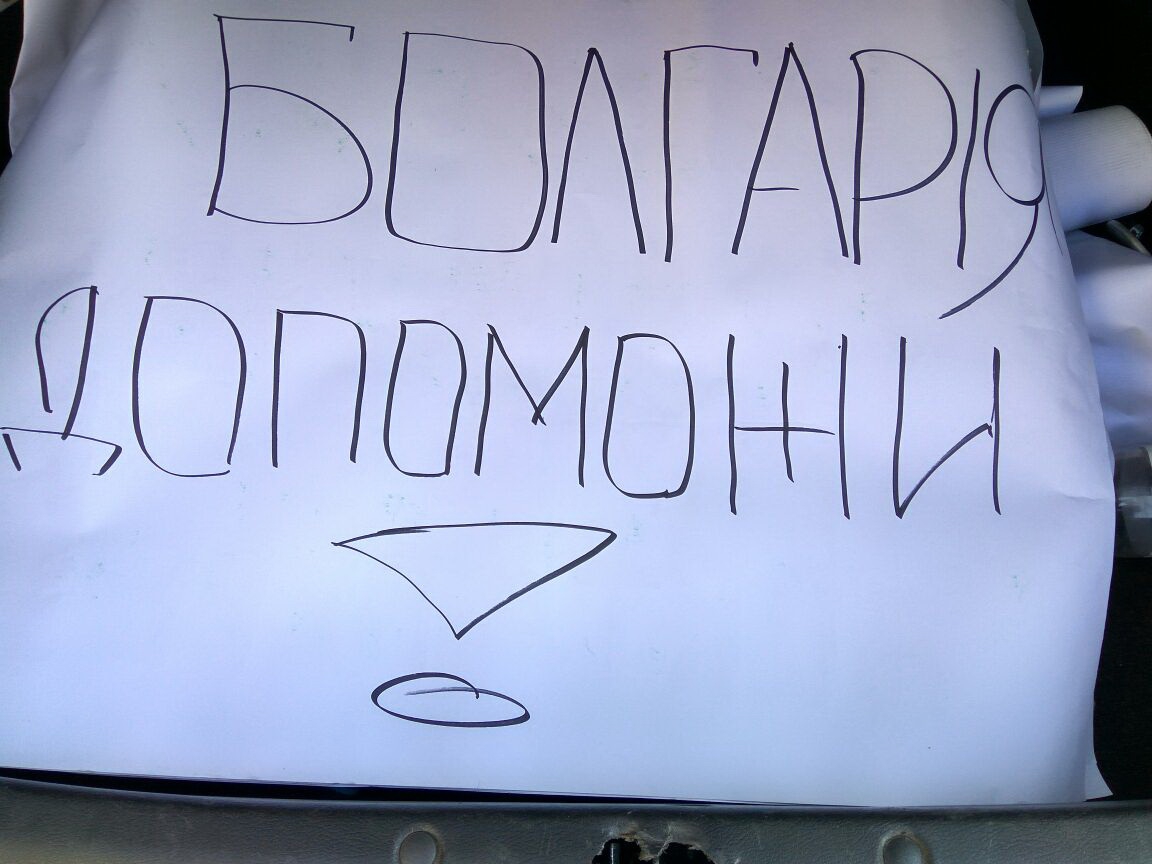 БОЛГАРІЯ
ДОПОМОЖИ
!